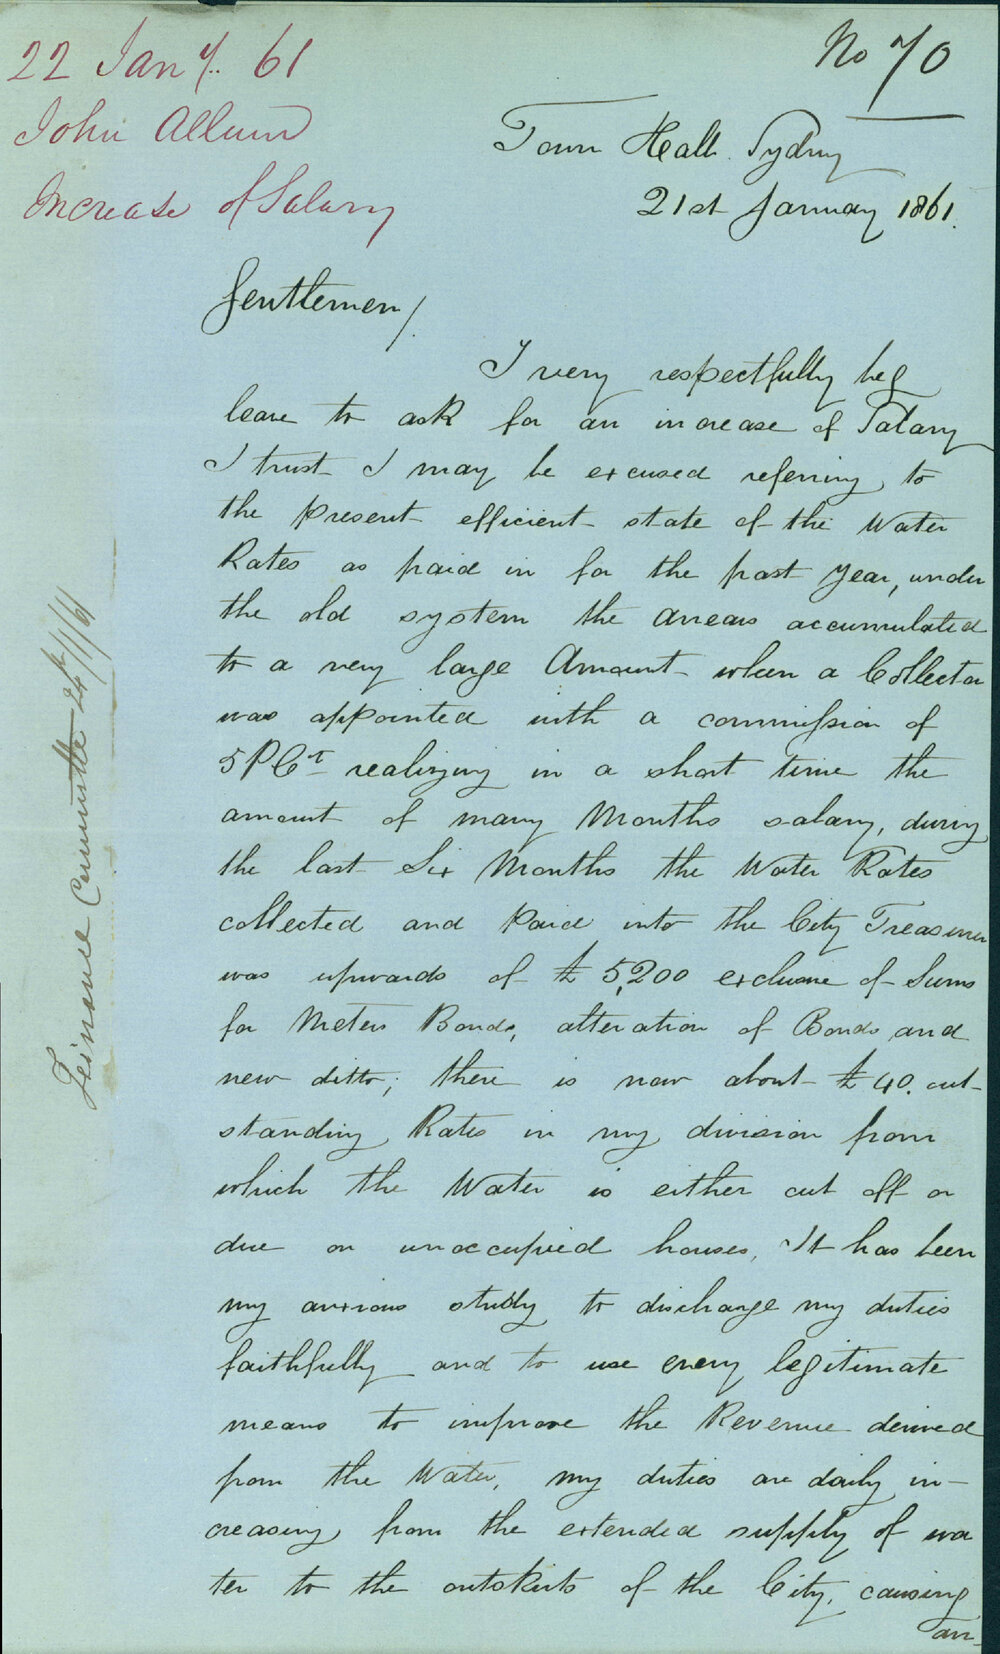 22 Jany. 61
John Allum
Increase of Salary
No 70
Town Hall Sydney
21st January 1861.
Gentlemen/
I very respectfully beg
leave to ask for an increase of Salary
I trust I may be excused referring to
the present efficient state of the Water
Rates as paid in for the past year, under
the old system the arrears accumulated
to a very large Amount when a Collector
was appointed with a commission of
5 P Ct realizing in a short time the
amount of many Months salary, during
the last Six Months the Water Rates
collected and Paid into the City Treasurer
was upwards of £5,200 exclusive of Sums
for Meters Bonds, alteration of Bonds and
new ditto; there is now about £40. out-
standing Rates in my division from
which the Water is either cut off or
due on unoccupied houses, It has been
my anxious study to discharge my duties
faithfully and to use every legitimate
means to improve the Revenue derived
from the Water, my duties are daily in-
creasing from the extended supply of wa
ter to the outskirts of the City, causing
an
Finance Committee 24/1/61